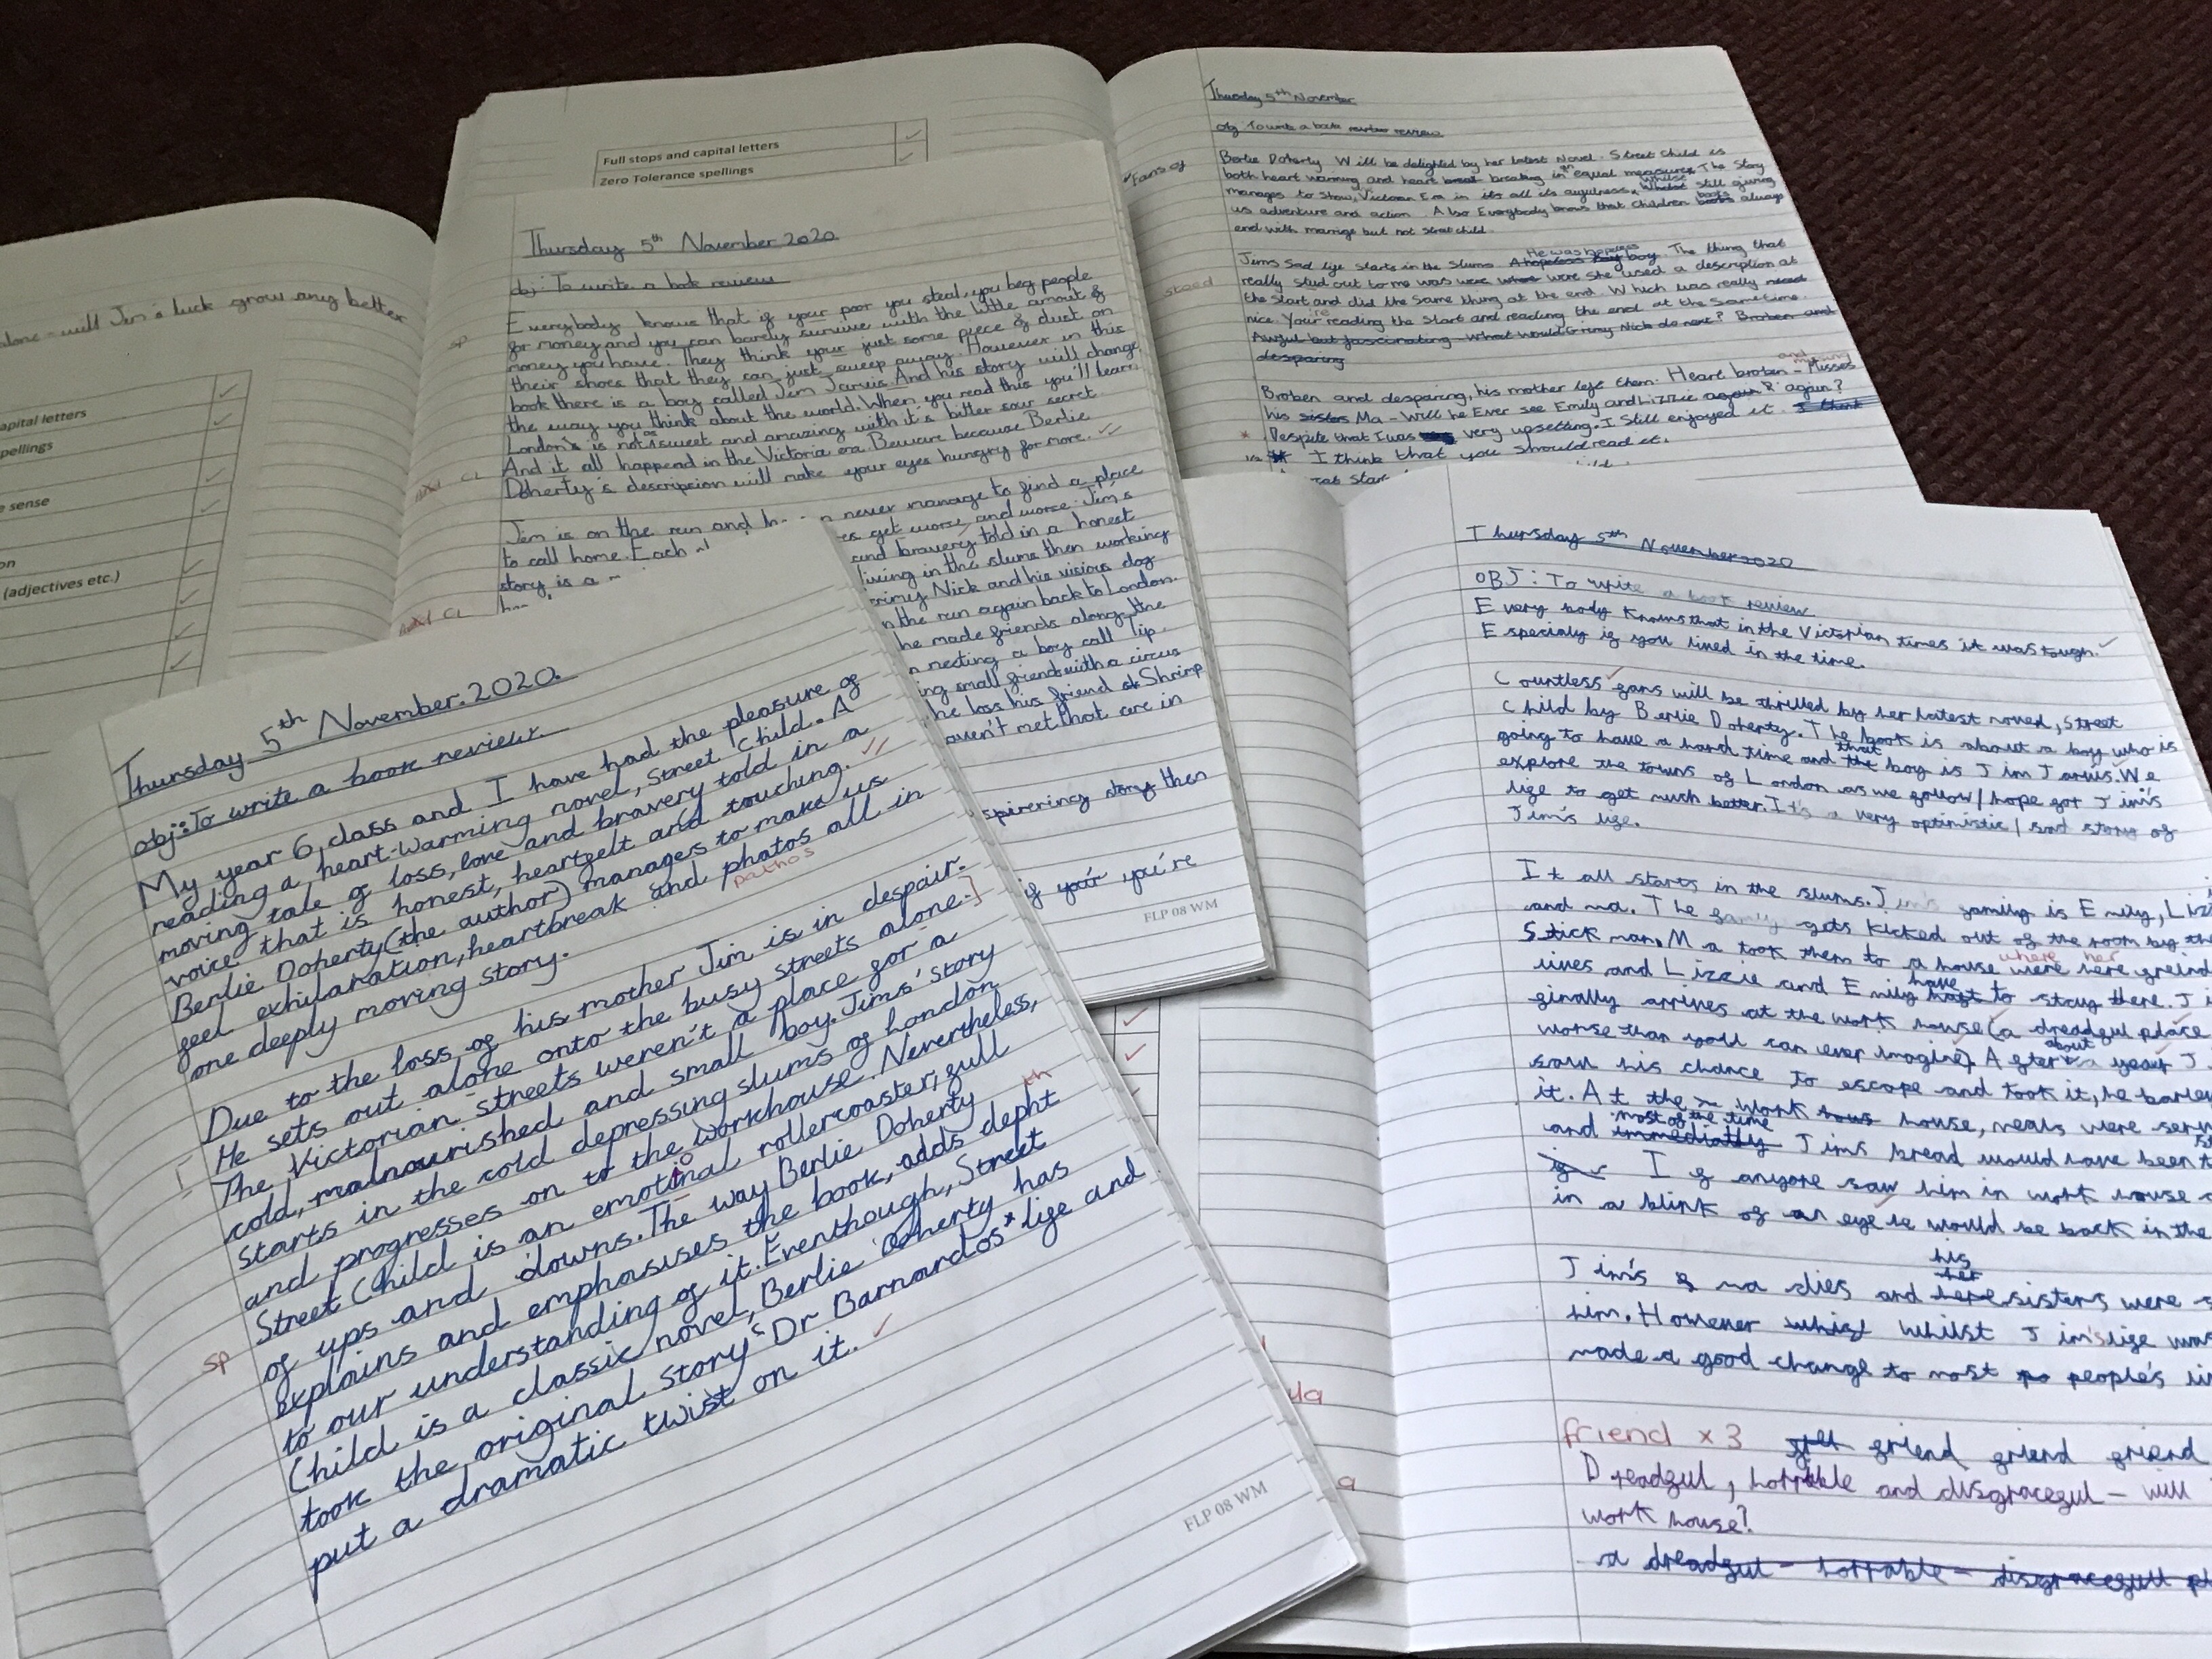 alone - will Jim's luck grow any better
apital letters
pellings
e sense
on
(adjectives etc.)
Full stops and capital letters
Zero Tolerance spellings
Thursday 5th November 2020
obj: To write a book review
Everybody knows that if your poor you steal, you beg people
for money and you can barely survive with the little amout of
money you have. They think your just some piece of dust on
their shoes that they can just sweep away. However in this
book there is a boy called Jim Jarvis. And his story will change
the way you think about the world. When you read this you'll learn
London's is not as sweet and amazing with it's bitter sour secret
And it all happend in the Victoria era. Beware because Berlie
Doherty's description will make your eyes hungry for more.
sp
Jim is on the run and never manage to find a place
to call home. Each get worse and worse. Jim's
story is a and bravery told in a honest
living in the slums then working
Grimy Nick and his visious dog
n the run again back to London.
he made friends along the
n nesting a boy call Tip.
ing small friend with a circus
he loss his friend Shrimp
aven't met that are in
spirering story then
if your you're
FLP 08 WM
Thursday 5th November
obj: To write a book review review
"Fans of
Berlie Doherty Will be delighted by her latest Novel. Street child is
both heart warming and heart breaking in equal measures. The Story
manages to show, Victorian Era in its all its awfulness, whilst still giving
us adventure and action. Also Everybody knows that children books always
end with marrige but not street child.
Jims Sad life starts in the Slums. He was hopeless boy. The thing that
really stud out to me was were she used a description at
the Start and did the same thing at the end. Which was really
nice. You're reading the Start and reading the end at the Sametime.
Awful but fascinating - What would Grimy Nick do next? Broken and
desparing
stood
Broken and desparing, his mother left them. Heart broken - and missing
his sisters Ma - Will he Ever see Emily and Lizzie again? again?
Despite that I was very upsetting. I Still enjoyed it. I think
I think that you should read it.
Thursday 5th November. 2020.
obj: To write a book review
My year 6 class and I have had the pleasure of
reading a heart-warming novel, Street Child. A
moving tale of loss, love and bravery told in a
voice that is honest, heartfelt and touching.
Berlie Doherty (the author) manages to make us
feel exhilaration, heartbreak and photos all in
pathos
one deeply moving story.
Due to the loss of his mother Jim is in despair.
He sets out alone onto the busy streets alone.]
The Victorian streets weren't a place for a
cold, malnourished and small boy. Jims' story
starts in the cold depressing slums of London
and progresses on to the workhouse. Nevertheless,
Street Child is an emotional rollercoaster, full
of ups and downs. The way Berlie Doherty
explains and emphasises the book, adds depht
th
to our understanding of it. Eventhough, Street
Child is a classic novel, Berlie Doherty has
took the original story "Dr Barnardos" life and
put a dramatic twist on it.
sp
FLP 08 WM
Thursday 5th November 2020
OBJ: To write a book review
Every body knows that in the Victorian times it was tough.
Especialy if you lived in the time.
Countless fans will be thrilled by her latest noved, Street
Child by Berlie Doherty. The book is about a boy who is
going to have a hard time and that the boy is Jim Jarvis. We
explore the towns of London as we follow/hope got Jim's
life to get much better. It's a very optimistic/sad story of
Jim's life.
It all starts in the slums. Jim's family is Emily, Liz
and ma. The family gets kicked out of the room by the
Stick man. Ma took them to a house where her
were here greind
lives and Lizzie and Emily have to stay there. J
finally arrives at the work house (a dreadful place
worse than you'll can ever imagine). After about a year J
saw his chance to escape and took it, he barley
it. At the work house, meals were ser
and most of the time immediatly Jims bread would have been
If anyone saw him in work house
in a blink of an eye would be back in the
Jim's ma dies and his sisters were
him. However whilst Jim's life was
made a good change to most people's li
friend x 3 friend friend friend
Dreadful, horrable and disgraceful - will
work house?
a dreadful - horrable - disgracefull pl